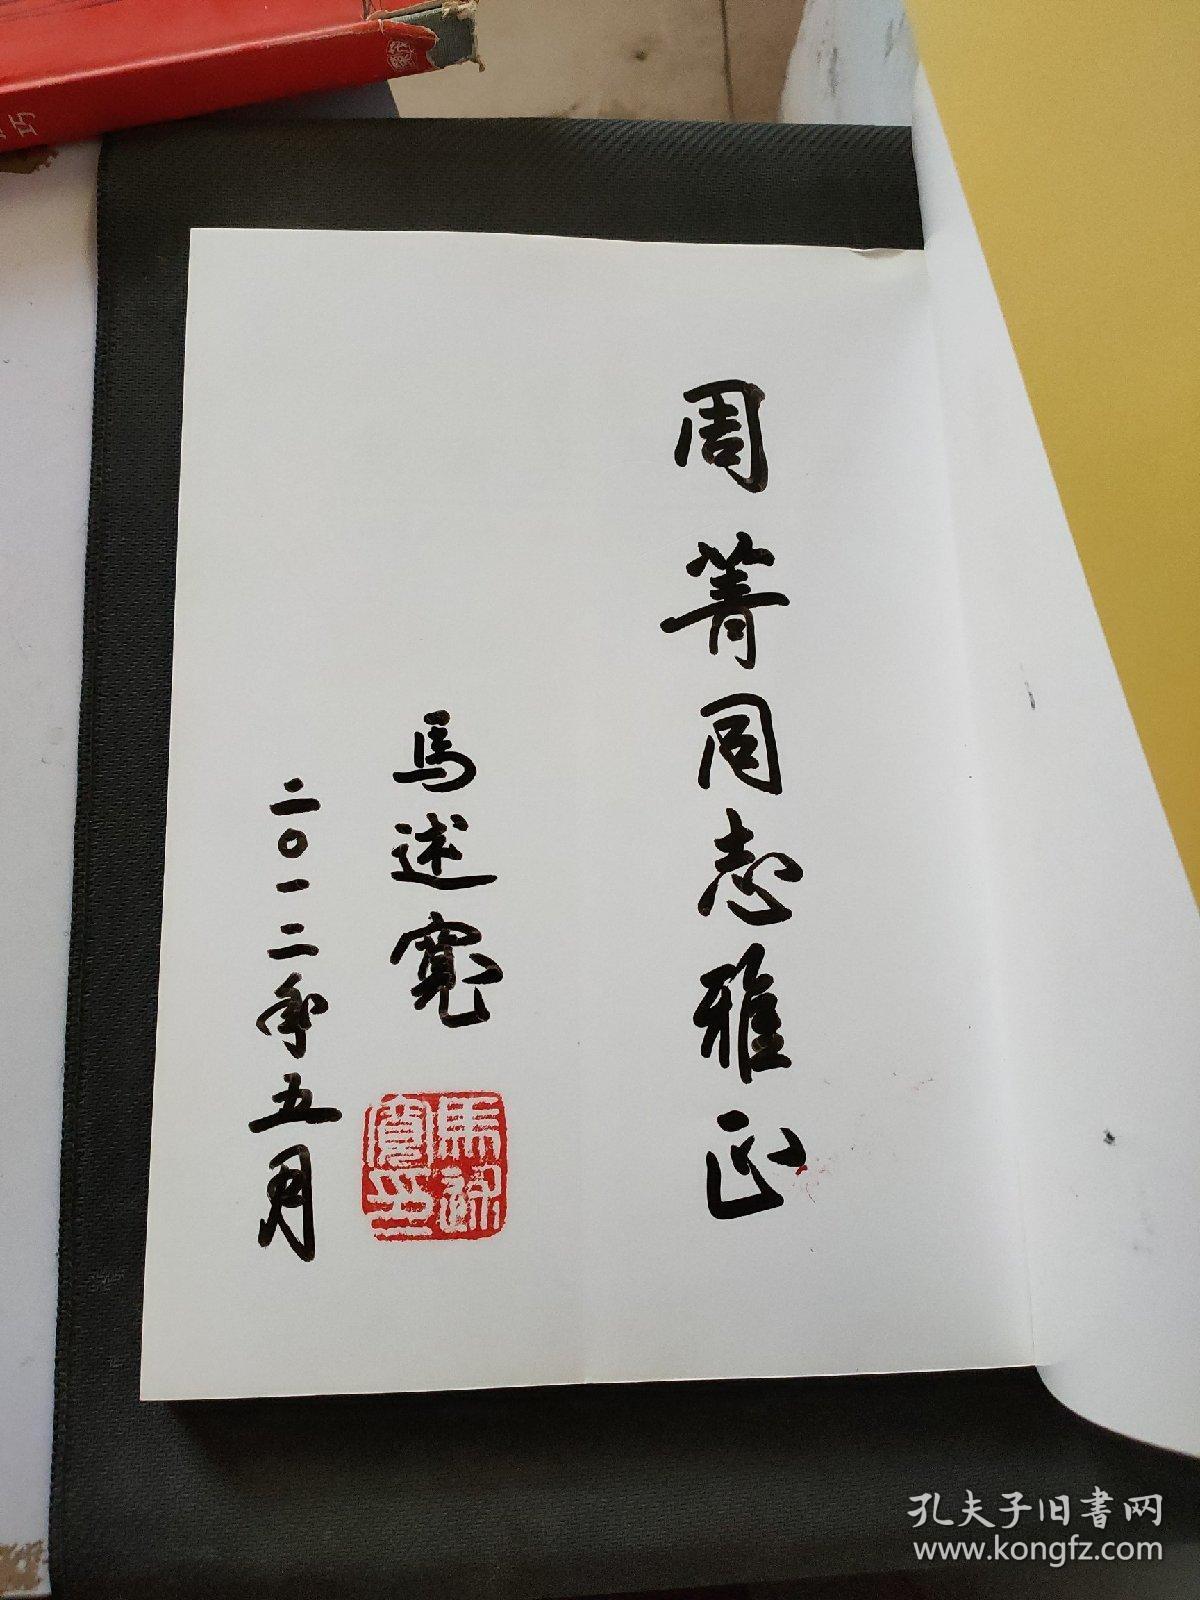 周菁同志雅正
馬述寬
二〇一二年五月
馬述寬印
巧
孔夫子旧書网
www.kongfz.com